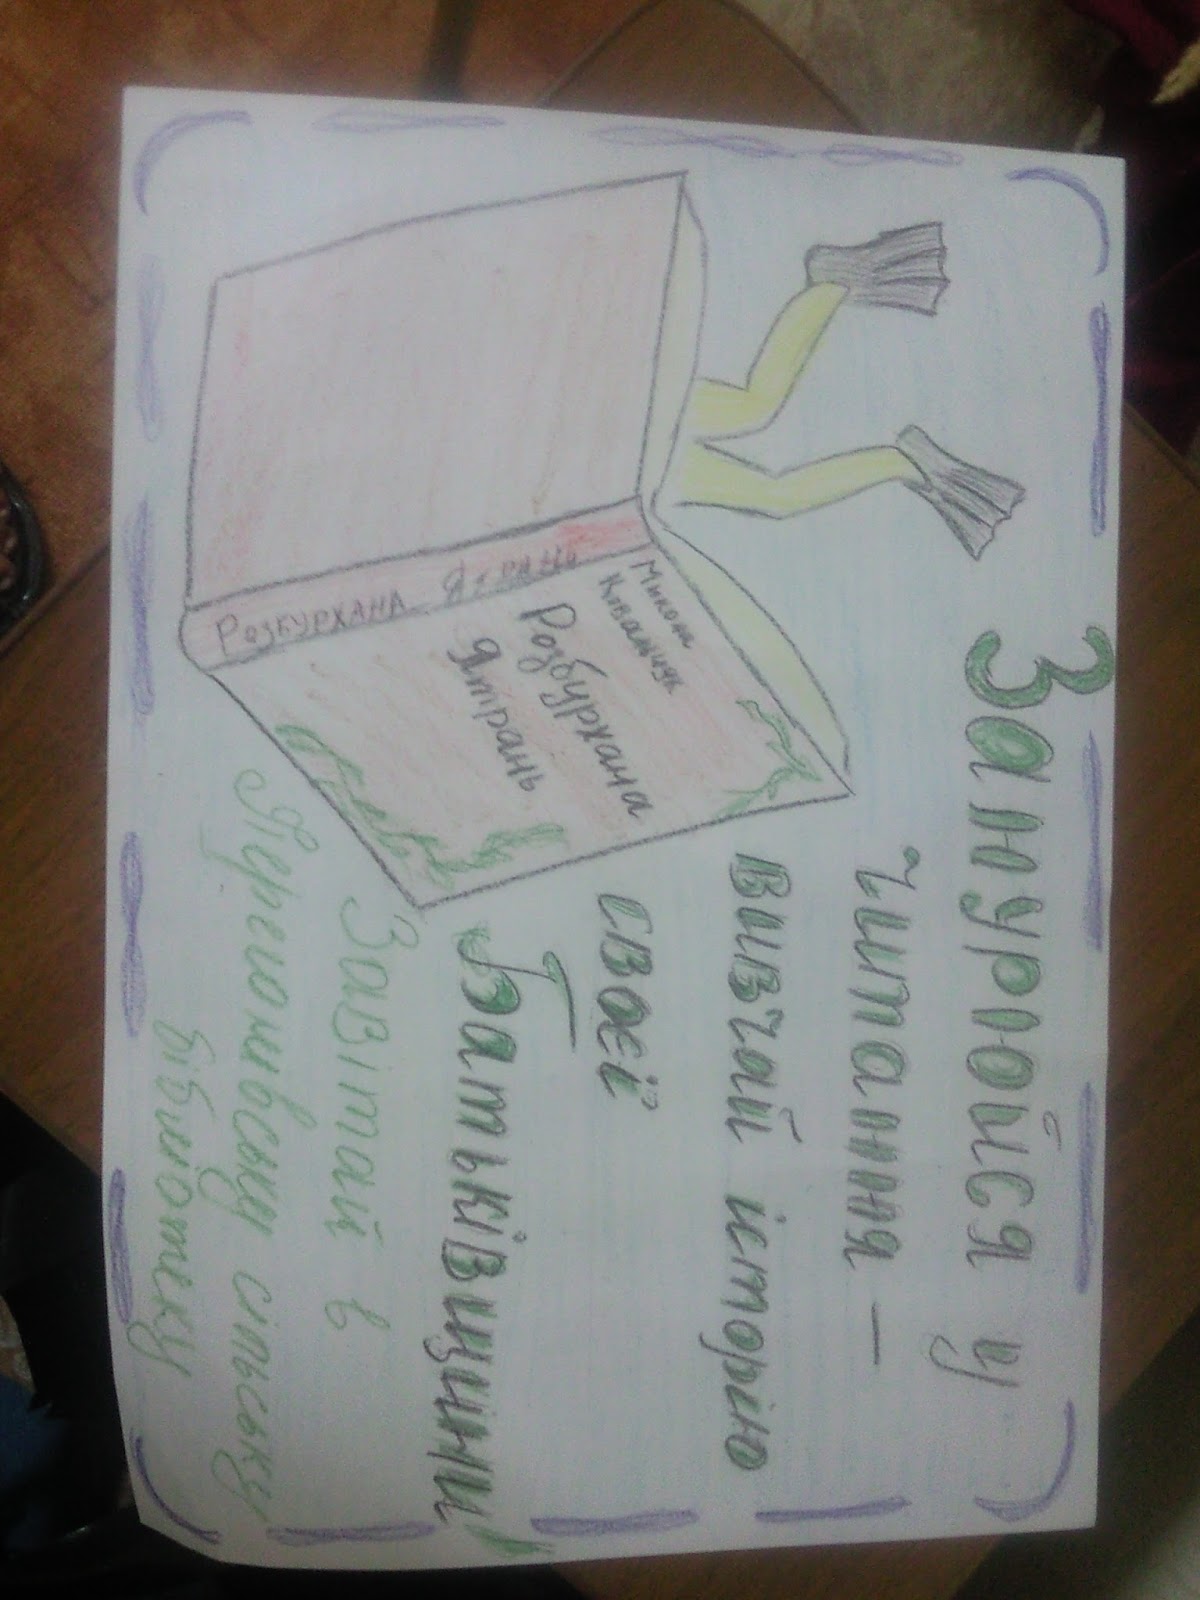 Занурюйся у
читання –
вивчай історію
своєї
Батьківщини
Завітай в
Перегонівську сільську
бібліотеку
Микола
Ковальчук
Розбурхана
Ятрань
РОЗБУРХАНА Ятрань